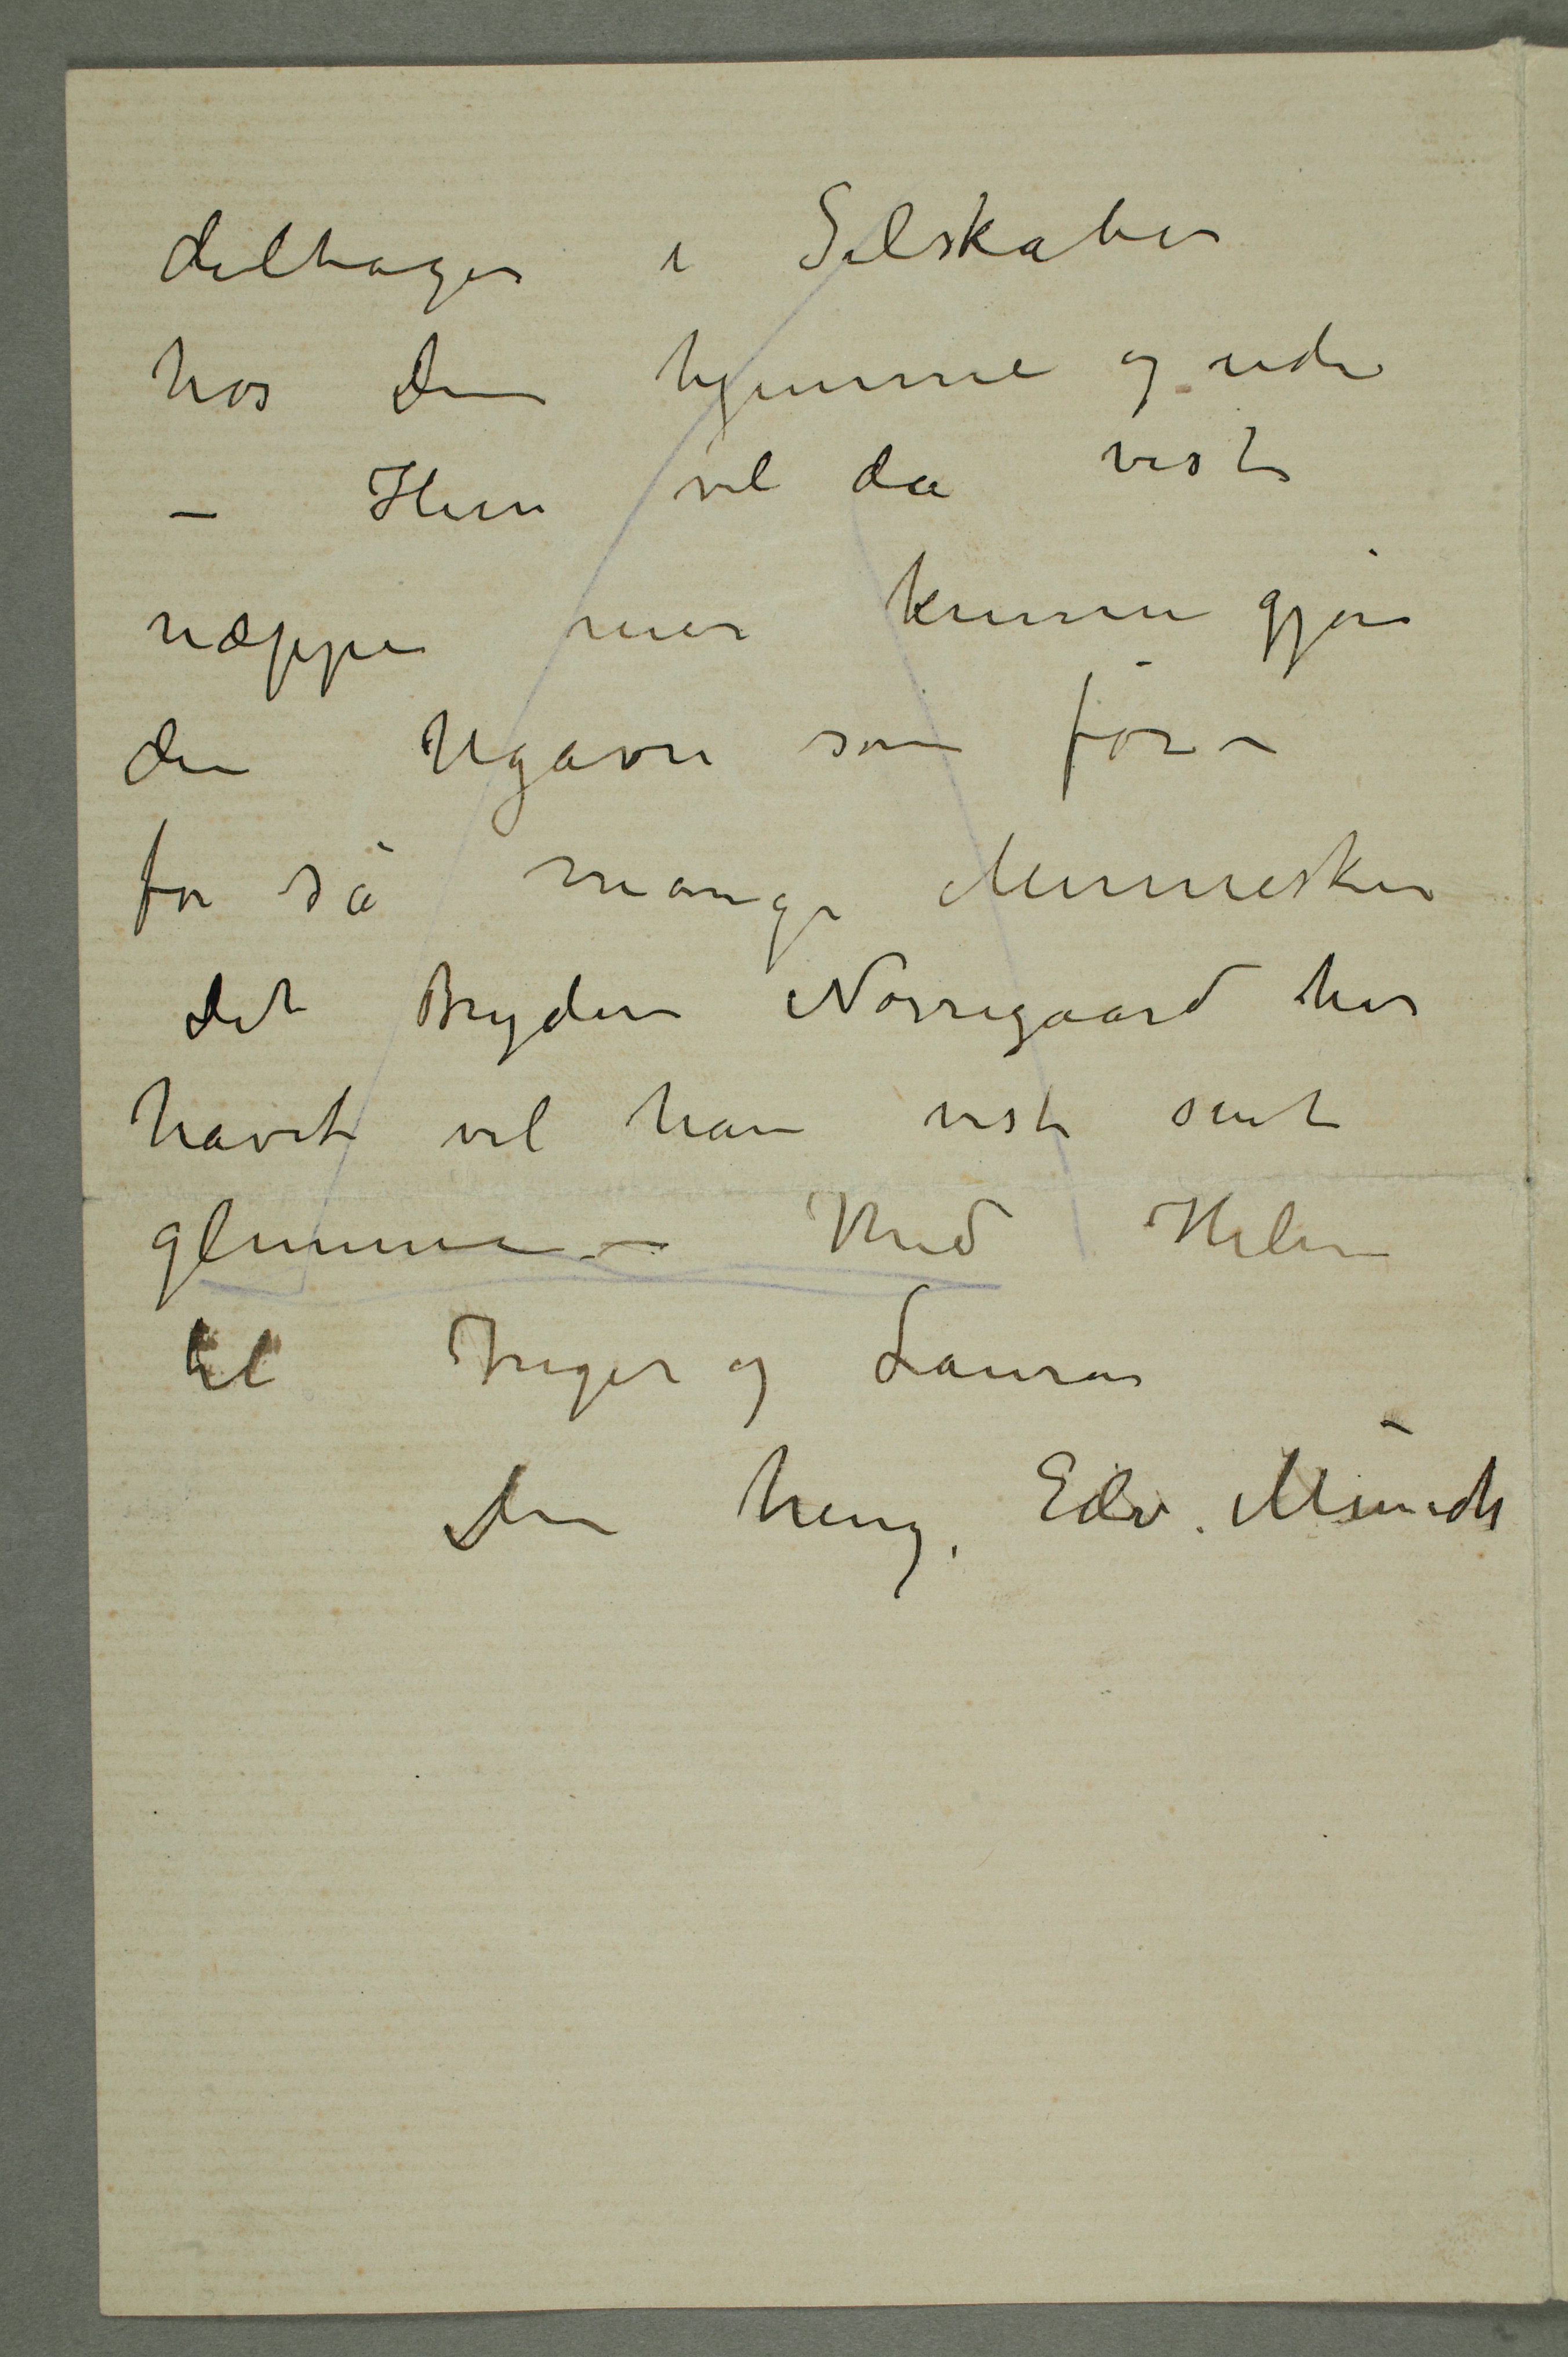 deltager i Selskaber
hos dem hjemme og ude
– Hun vil da vist
næppe mer kunne gjøre
den Ugavn som før –
for så mange Mennesker
Det Bryderi Nørregaard har
havt vil han vist sent
glemme – Med Hilsen
til Inger og Laura
Din heng. Edv. Munch